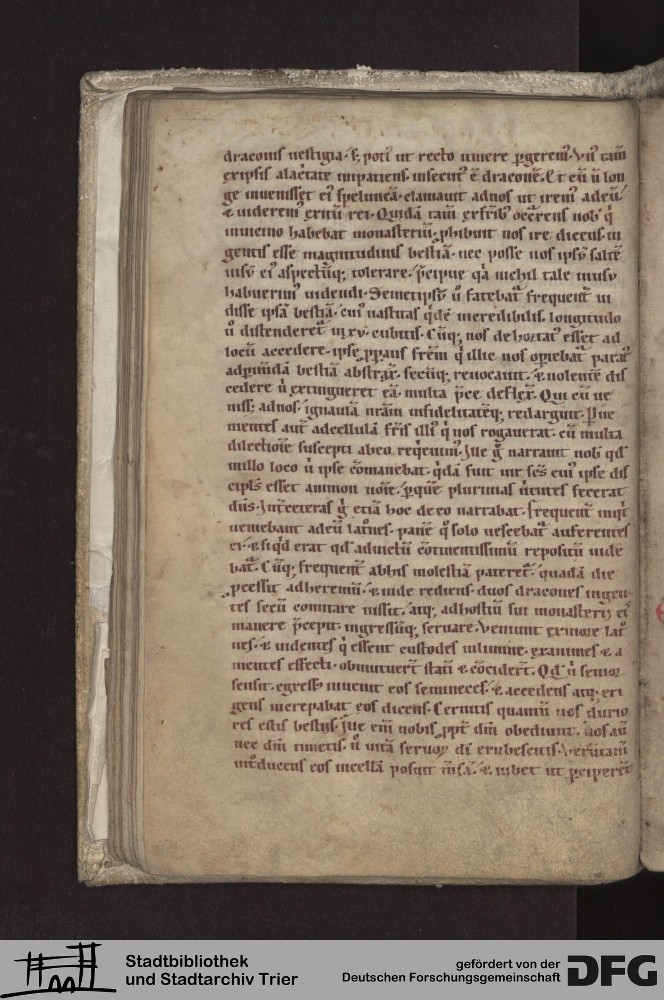 draconis uestigia· s; poti᷒ ut recto itinere p̱gerem᷒· Vn᷒ tam̄
ex ipsis alac̄tate impatiens· insecut᷒ ē draconē· Et cū n̄ lon
ge inuenisset ei᷒ speluncā· clamauit ad nos ut irem᷒ ad eū·
⁊ uiderem᷒ exitū rei· Quidā tam̄ ex frīb᷒ occ̄rens nob᷒ q̇
in uicino habebat monasteriū· phibuit nos ire dicens· in
gentis esse magnitudinis bestiā· nec posse nos ipsū saltē
uisū ei᷒ aspectūq; tolerare· p̄cipue q̇a nichil tale in usu
habuerim᷒ uidendi· Semetipsū ū fatebat᷑ frequent̄ ui
disse ipsā bestiā· cui᷒ uastitas q̇dē incredibilis· longitudo
ū distenderet᷑ in xv· cubitis· Cūq; nos dehortat᷒ esset ad
locū accedere· ipse pp̱ans frēm q̇ illic nos opiebat᷑ parat᷒
ad pimdā bestiā abstrax̄· secūq; reuocauit· ⁊ nolentē dis
cedere n̄ extingueret eā· multa p̄ce deflex̄· Qui cū ue
niss; ad nos· ignauiā nr̄am infidelitatēq; redarguit· P̱ue
nientes aut̄ ad cellulā fr̄is illi᷒ q̇ nos rogauerat· cū multa
dilectioīe suscepti ab eo req̇euim᷒· Ille g̊ narrauit nob᷒ qd᷒
in illo loco ū ipse cōmanebat· q̇dā fuit uir sc̄s cui᷒ ipse dis
cipls̄ esset ammon noīe· p̱ quē plurimas ūtutes fecerat
dn̄s· Int̄ ceteras g̊ etiā hoc de eo narrabat· Frequent̄ inq̇t
ueniebant ad eū latōnes· panē q̊ solo uescebat᷑ auferentes
ei· ⁊ siq̇d erat qd᷒ ad uictū cōtinentissimū repositū uide
bat᷑· Cūq; frequent̄ ab his molestiā pateret᷑· quadā die
p̱cessit ad heremū· ⁊ inde rediens· duos dracones ingen
tes secū comitare iussit· atq; ad hostiū sui monasterij eos
manere p̄cepit· ingressūq; seruare· Veniunt ex more latō
nes· ⁊ uidentes q̇ essent custodes in limine· exanimes ⁊ a
mentes effecti· obmutuer̄t statī ⁊ cōcider̄t· Qd᷒ ū senior
sensit· egress᷒ inuenit eos semineces· ⁊ accedens atq; eri
gens increpabat eos dicens· Cernitis quantū uos durio
res estis bestijs· Ille eni᷒ nobis ppt̄ dn̄m obediunt· uos aū
nec dm̄ timetis· n̄ uitā seruoꝝ dī erubescitis· Verūtam̄
int̊ducens eos in cellā posuit m̄sā· ⁊ iubet ut p̱ciperēt
Stadtbibliothek
und Stadtarchiv Trier
gefördert von der
Deutschen Forschungsgemeinschaft
DFG